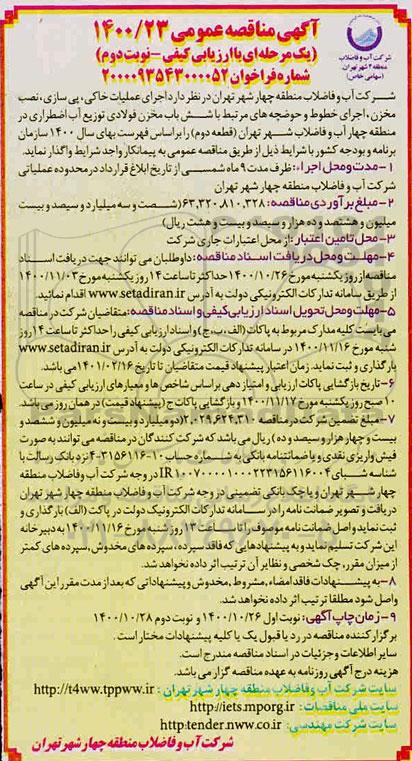 آگهی مناقصه عمومی ۱۴۰۰/۲۳
(یک مرحله‌ای با ارزیابی کیفی – نوبت دوم)
شماره فراخوان ۲۰۰۰۰۹۳۵۴۳۰۰۰۰۵۲
شرکت آب و فاضلاب
منطقه ۴ شهر تهران
(سهامی خاص)
شرکت آب و فاضلاب منطقه چهار شهر تهران در نظر دارد اجرای عملیات خاکی، پی سازی، نصب
مخزن، اجرای خطوط و حوضچه های مرتبط با شش باب مخزن فولادی توزیع آب اضطراری در
منطقه چهار آب و فاضلاب شهر تهران (قطعه دوم) را براساس فهرست بهای سال ۱۴۰۰ سازمان
برنامه و بودجه کشور با شرایط ذیل از طریق مناقصه عمومی به پیمانکار واجد شرایط واگذار نماید.
۱- مدت و محل اجراء: ظرف مدت ۹ ماه شمسی از تاریخ ابلاغ قرارداد در محدوده عملیاتی
شرکت آب و فاضلاب منطقه چهار شهر تهران
۲- مبلغ برآوردی مناقصه: ۶۳,۳۲۰,۸۱۰,۳۲۸ (شصت و سه میلیارد و سیصد و بیست
میلیون و هشتصد و ده هزار و سیصد و بیست و هشت ریال)
۳- محل تامین اعتبار: از محل اعتبارات جاری شرکت
۴- مهلت و محل دریافت اسناد مناقصه: داوطلبان می توانند جهت دریافت اسناد
مناقصه از روز یکشنبه مورخ ۱۴۰۰/۱۰/۲۶ حداکثر تا ساعت ۱۴ روز یکشنبه مورخ ۱۴۰۰/۱۱/۰۳
از طریق سامانه تدارکات الکترونیکی دولت به آدرس www.setadiran.ir اقدام نمائید.
۵- مهلت و محل تحویل اسناد ارزیابی کیفی و اسناد مناقصه: متقاضیان شرکت در مناقصه
می بایست کلیه مدارک مربوط به پاکات (الف، ب، ج) و اسناد ارزیابی کیفی را حداکثر تا ساعت ۱۴ روز
شنبه مورخ ۱۴۰۰/۱۱/۱۶ در سامانه تدارکات الکترونیکی دولت به آدرس www.setadiran.ir
بارگذاری و ثبت نماید. زمان اعتبار پیشنهاد قیمت متقاضیان تا تاریخ ۱۴۰۱/۰۲/۱۶ می باشد.
۶- تاریخ بازگشایی پاکات ارزیابی و امتیازدهی براساس شاخص ها و معیارهای ارزیابی کیفی در ساعت
۱۰ صبح روز یکشنبه مورخ ۱۴۰۰/۱۱/۱۷ و بازگشایی پاکات ج (پیشنهاد قیمت) در همان روز می باشد.
۷- مبلغ تضمین شرکت در مناقصه ۲,۰۲۹,۶۲۴,۳۱۰ (دو میلیارد و بیست و نه میلیون و ششصد و
بیست و چهار هزار و سیصد و ده) ریال می باشد که شرکت کنندگان در مناقصه می توانند به صورت
فیش واریزی نقدی و یا ضمانتنامه بانکی به شماره حساب ۱۰-۳۱۵۶۱۱۶-۴ نزد بانک رسالت با
شناسه شبای IR۱۰۰۷۰۰۰۰۱۰۰۰۲۲۳۱۵۶۱۱۶۰۰۴ در وجه شرکت آب و فاضلاب منطقه
چهار شهر تهران و یا چک بانکی تضمینی در وجه شرکت آب و فاضلاب منطقه چهار شهر تهران
دریافت و تصویر ضمانت نامه را در سامانه تدارکات الکترونیک دولت در پاکت (الف) بارگذاری و
ثبت نماید و اصل ضمانت نامه موصوف را تا ساعت ۱۳ روز شنبه مورخ ۱۴۰۰/۱۱/۱۶ به دبیرخانه
این شرکت تسلیم نماید و به پیشنهادهایی که فاقد سپرده، سپرده های مخدوش، سپرده های کمتر
از میزان مقرر، چک شخصی و نظایر آن ترتیب اثر داده نخواهد شد.
۸- به پیشنهادات فاقد امضاء، مشروط، مخدوش و پیشنهاداتی که بعد از مدت مقرر این آگهی
واصل شود مطلقا ترتیب اثر داده نخواهد شد.
۹- زمان چاپ آگهی: نوبت اول ۱۴۰۰/۱۰/۲۶ و نوبت دوم ۱۴۰۰/۱۰/۲۸
برگزار کننده مناقصه در رد یا قبول یک یا کلیه پیشنهادات مختار است.
سایر اطلاعات و جزئیات در اسناد مناقصه مندرج است.
هزینه درج آگهی روزنامه به عهده مناقصه گزار می باشد.
سایت شرکت آب و فاضلاب منطقه چهار شهر تهران: http://t4ww.tppww.ir
سایت ملی مناقصات: http://iets.mporg.ir
سایت شرکت مهندسی: http:tender.nww.co.ir
شرکت آب و فاضلاب منطقه چهار شهر تهران